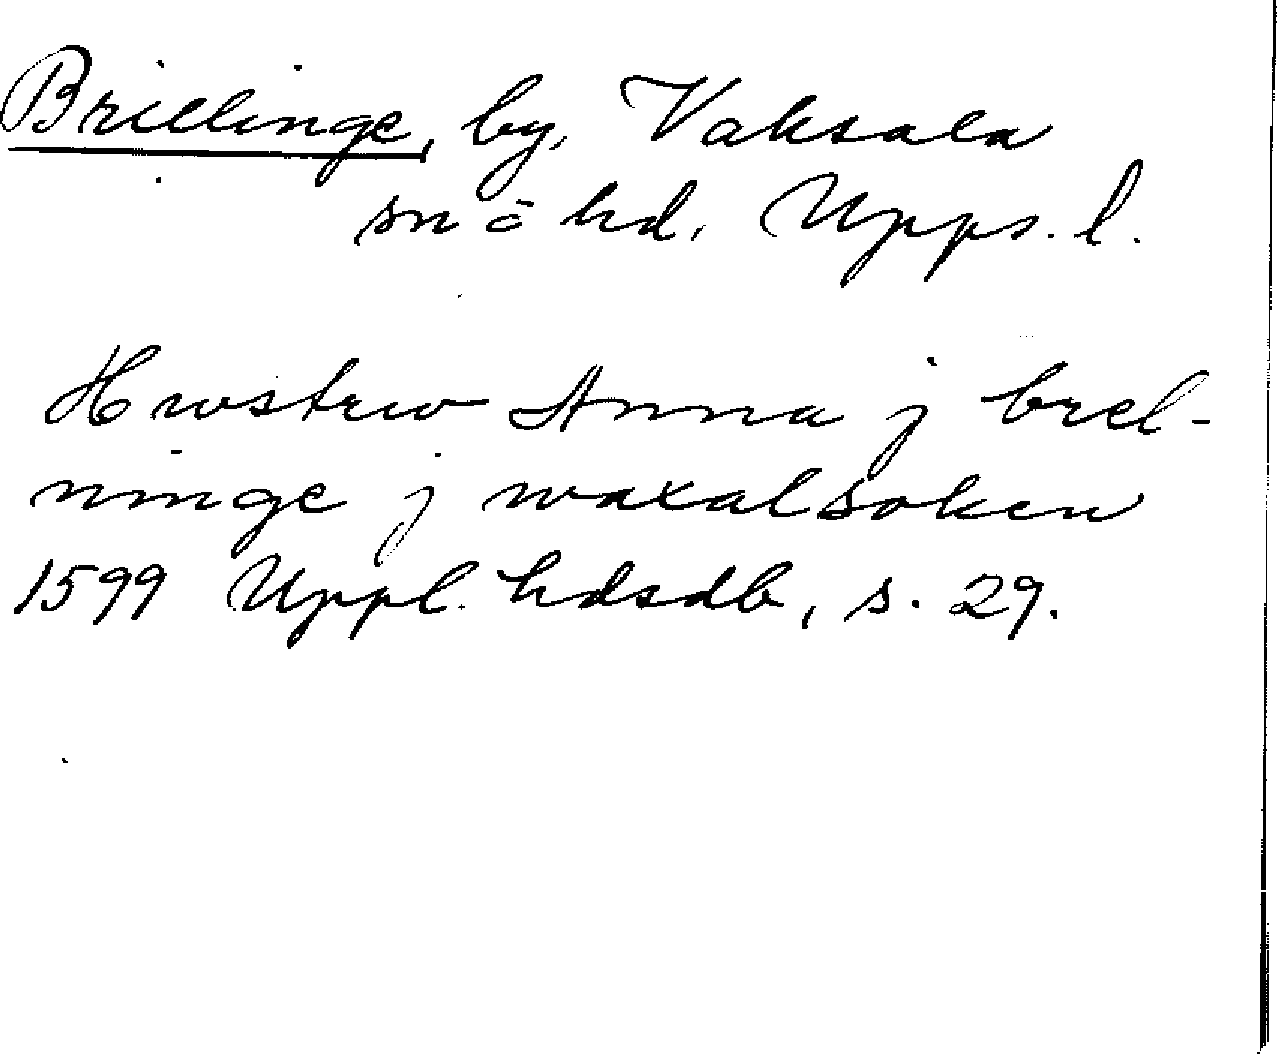 Brillinge, by, Vaksala
sn o hd, Upps. l.
Hwstrw Anna j brel-
ninge j waxalsoken
1599 Uppl. hdsdb, s. 29.